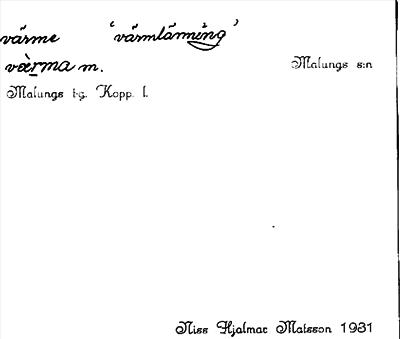 värme 'värmlänning'
värma m. Malungs s:n
Malungs t-g. Kopp. l.
Niss Hjalmar Matsson 1931